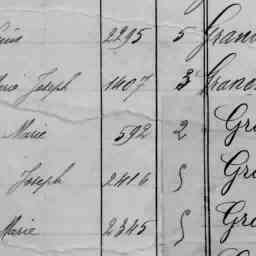 2295 5 Grand
Joseph 1407 3 Grand
Marie 592 2 Gr
Joseph 2416 5 Gr
Marie 2345 5 Gr